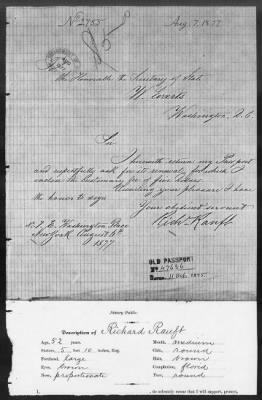 No 2755
Aug. 7, 1877
The Honorable the Secretary of State
W. Evarts
Washington, D.C.
Sir
I herewith return my Passport
and respectfully ask for its renewal, for which
enclose the customary fee of five dollars.
Awaiting your pleasure I have
the honor to sign
Your obedient servant
Rich. Rauft
No 7 E. Washington Place
New York August 5th
1877
OLD PASSPORT
No 47646
Notary Public.
Description of Richard Rauft
Age, 52 years.
Mouth, medium
Stature, 5 feet 10 inches, Eng.
Chin, round
Forehead, large
Hair, brown
Eyes, brown
Complexion, florid
Nose, proportionate
Face, round
I, do solemnly swear that I will support, protect,